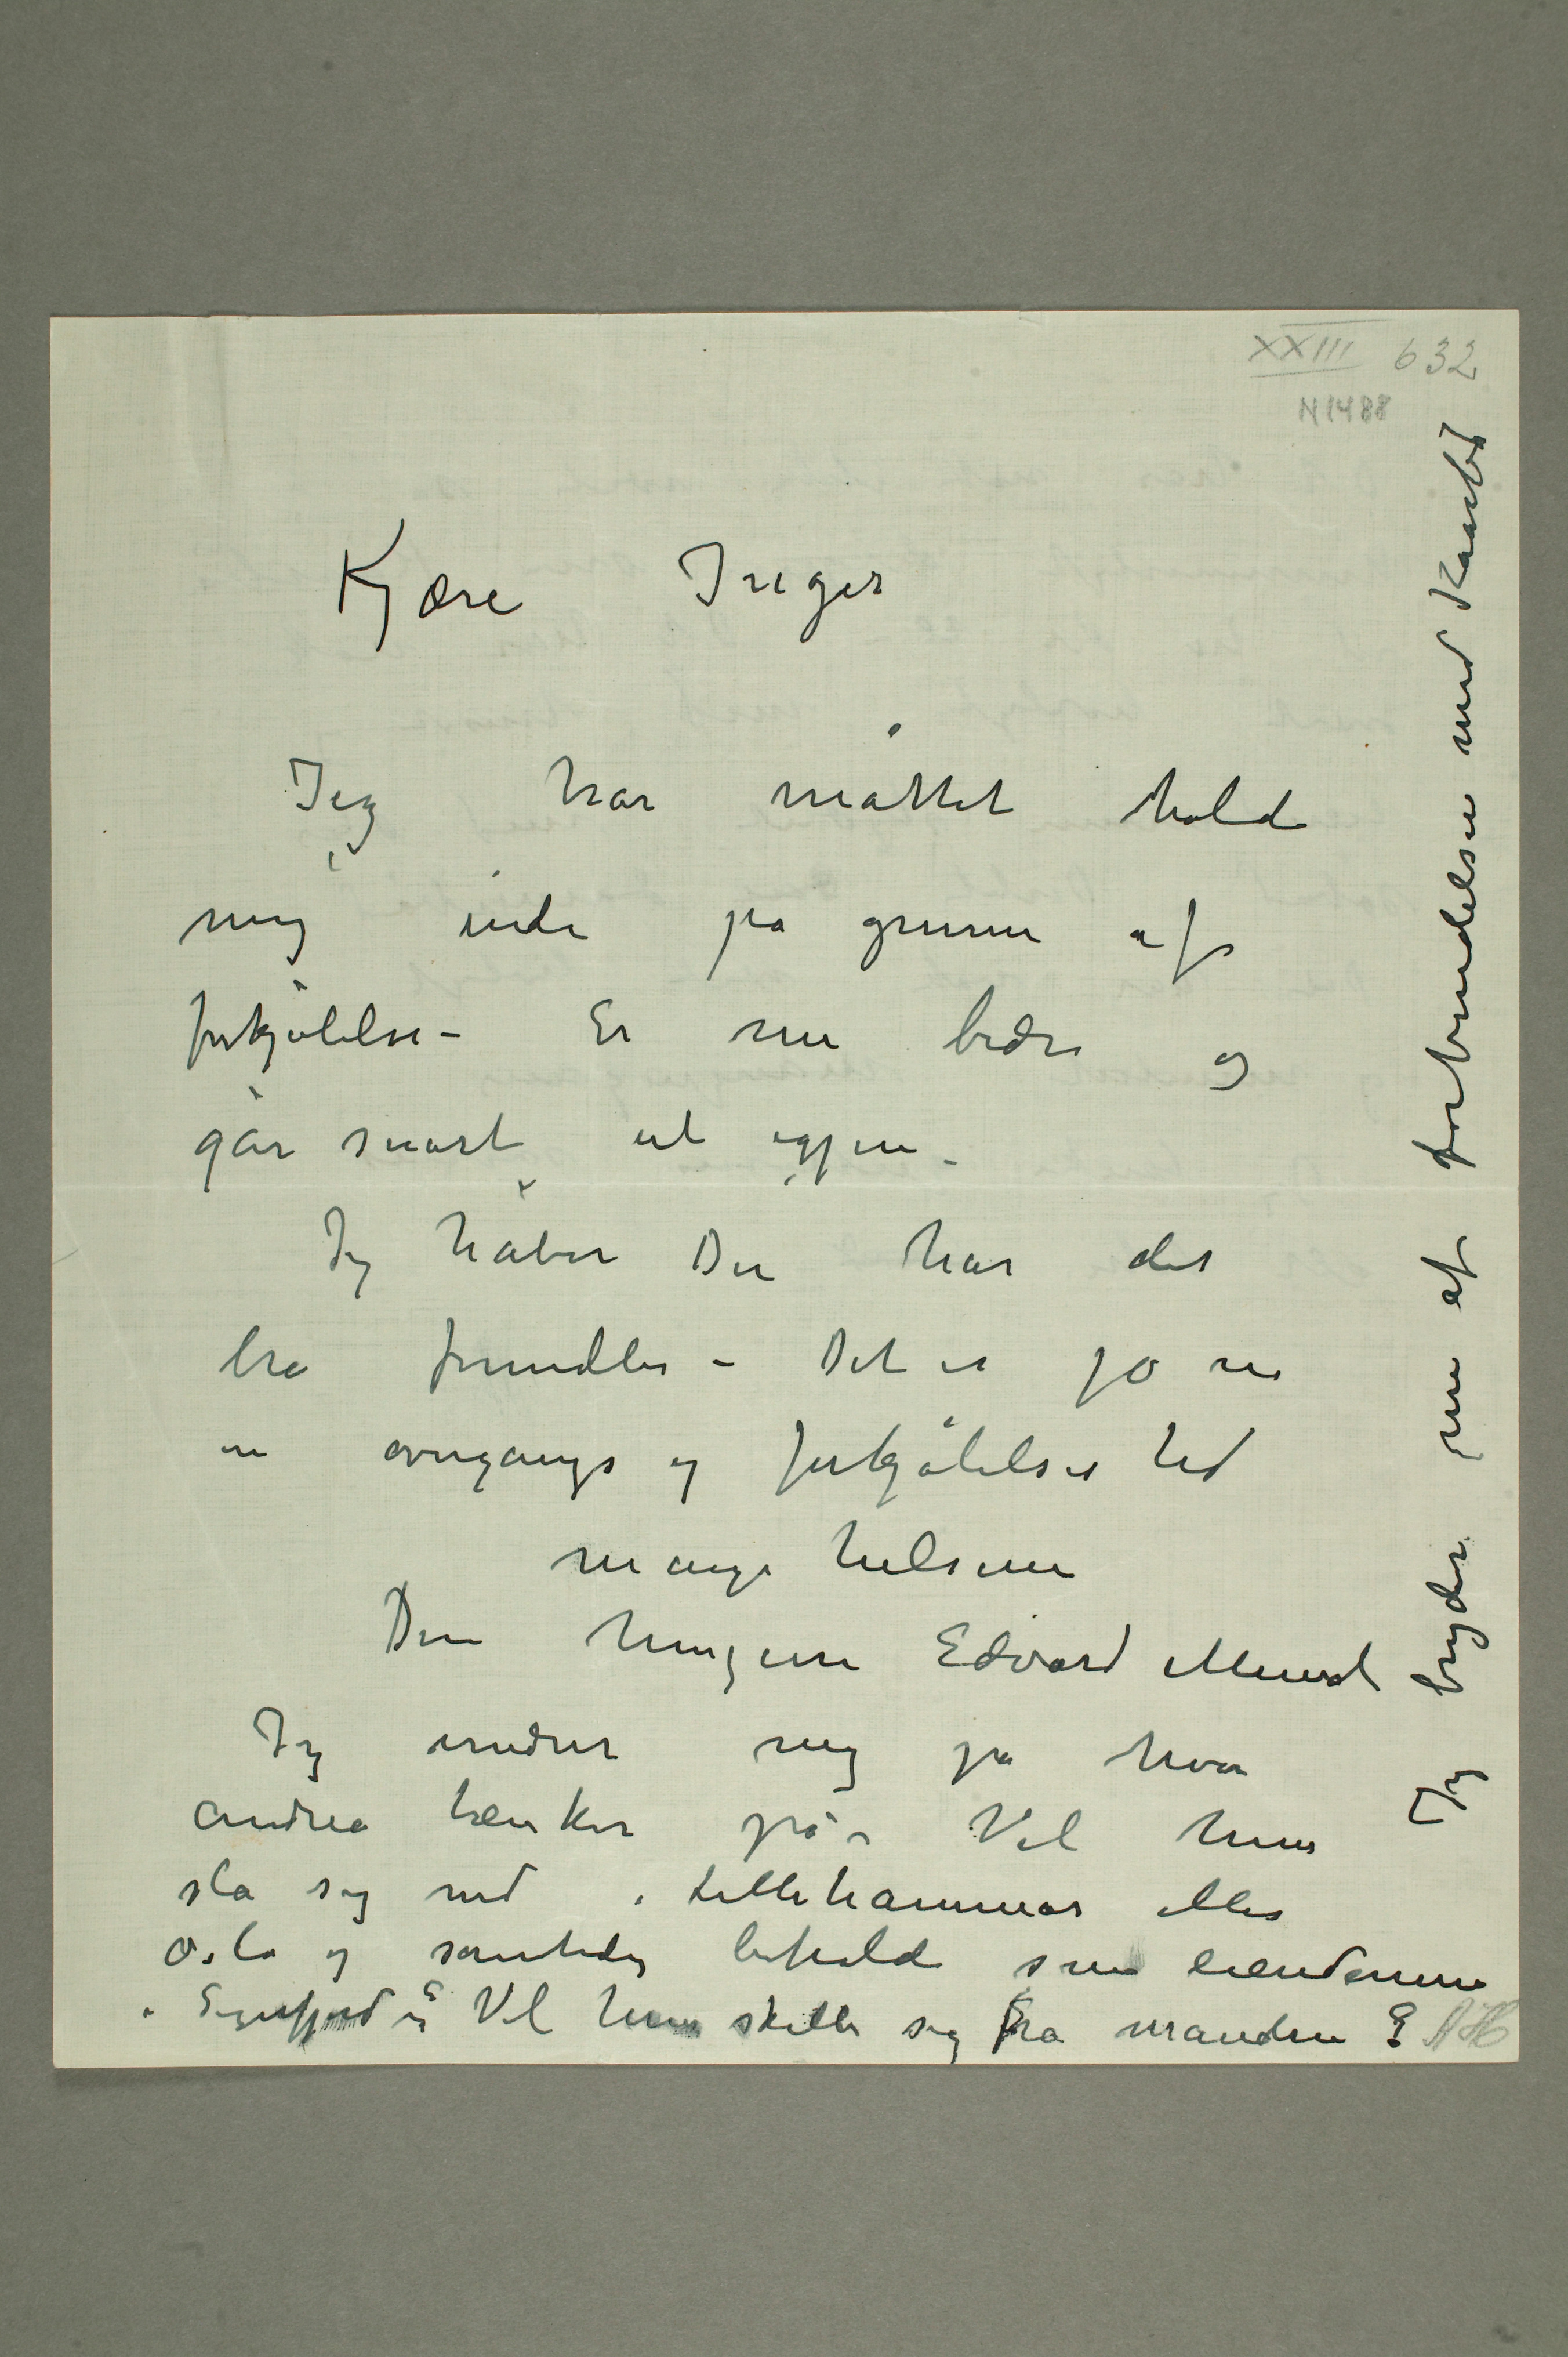 XXIII 632
N 1488
Kjære Inger
Jeg har måttet holde
mig inde på grunn af
forkjølelse – Er nu bedre og
går snart ut igjen –
Jeg håber Du har det
bra fremdeles – Det er jo nu
en overgangs og forkjølelses tid
mange hilsener
Din hengivne Edvard Munch
Jeg undrer mig på hva
Andrea tænker på – Vil hun
slå sig ned i Lillehammer eller
Oslo og samtidig beholde sine eiendomme
i Signifjord? Vil hun skille sig fra manden?
Jeg bryder nu af forbindelsen med Kaarbø